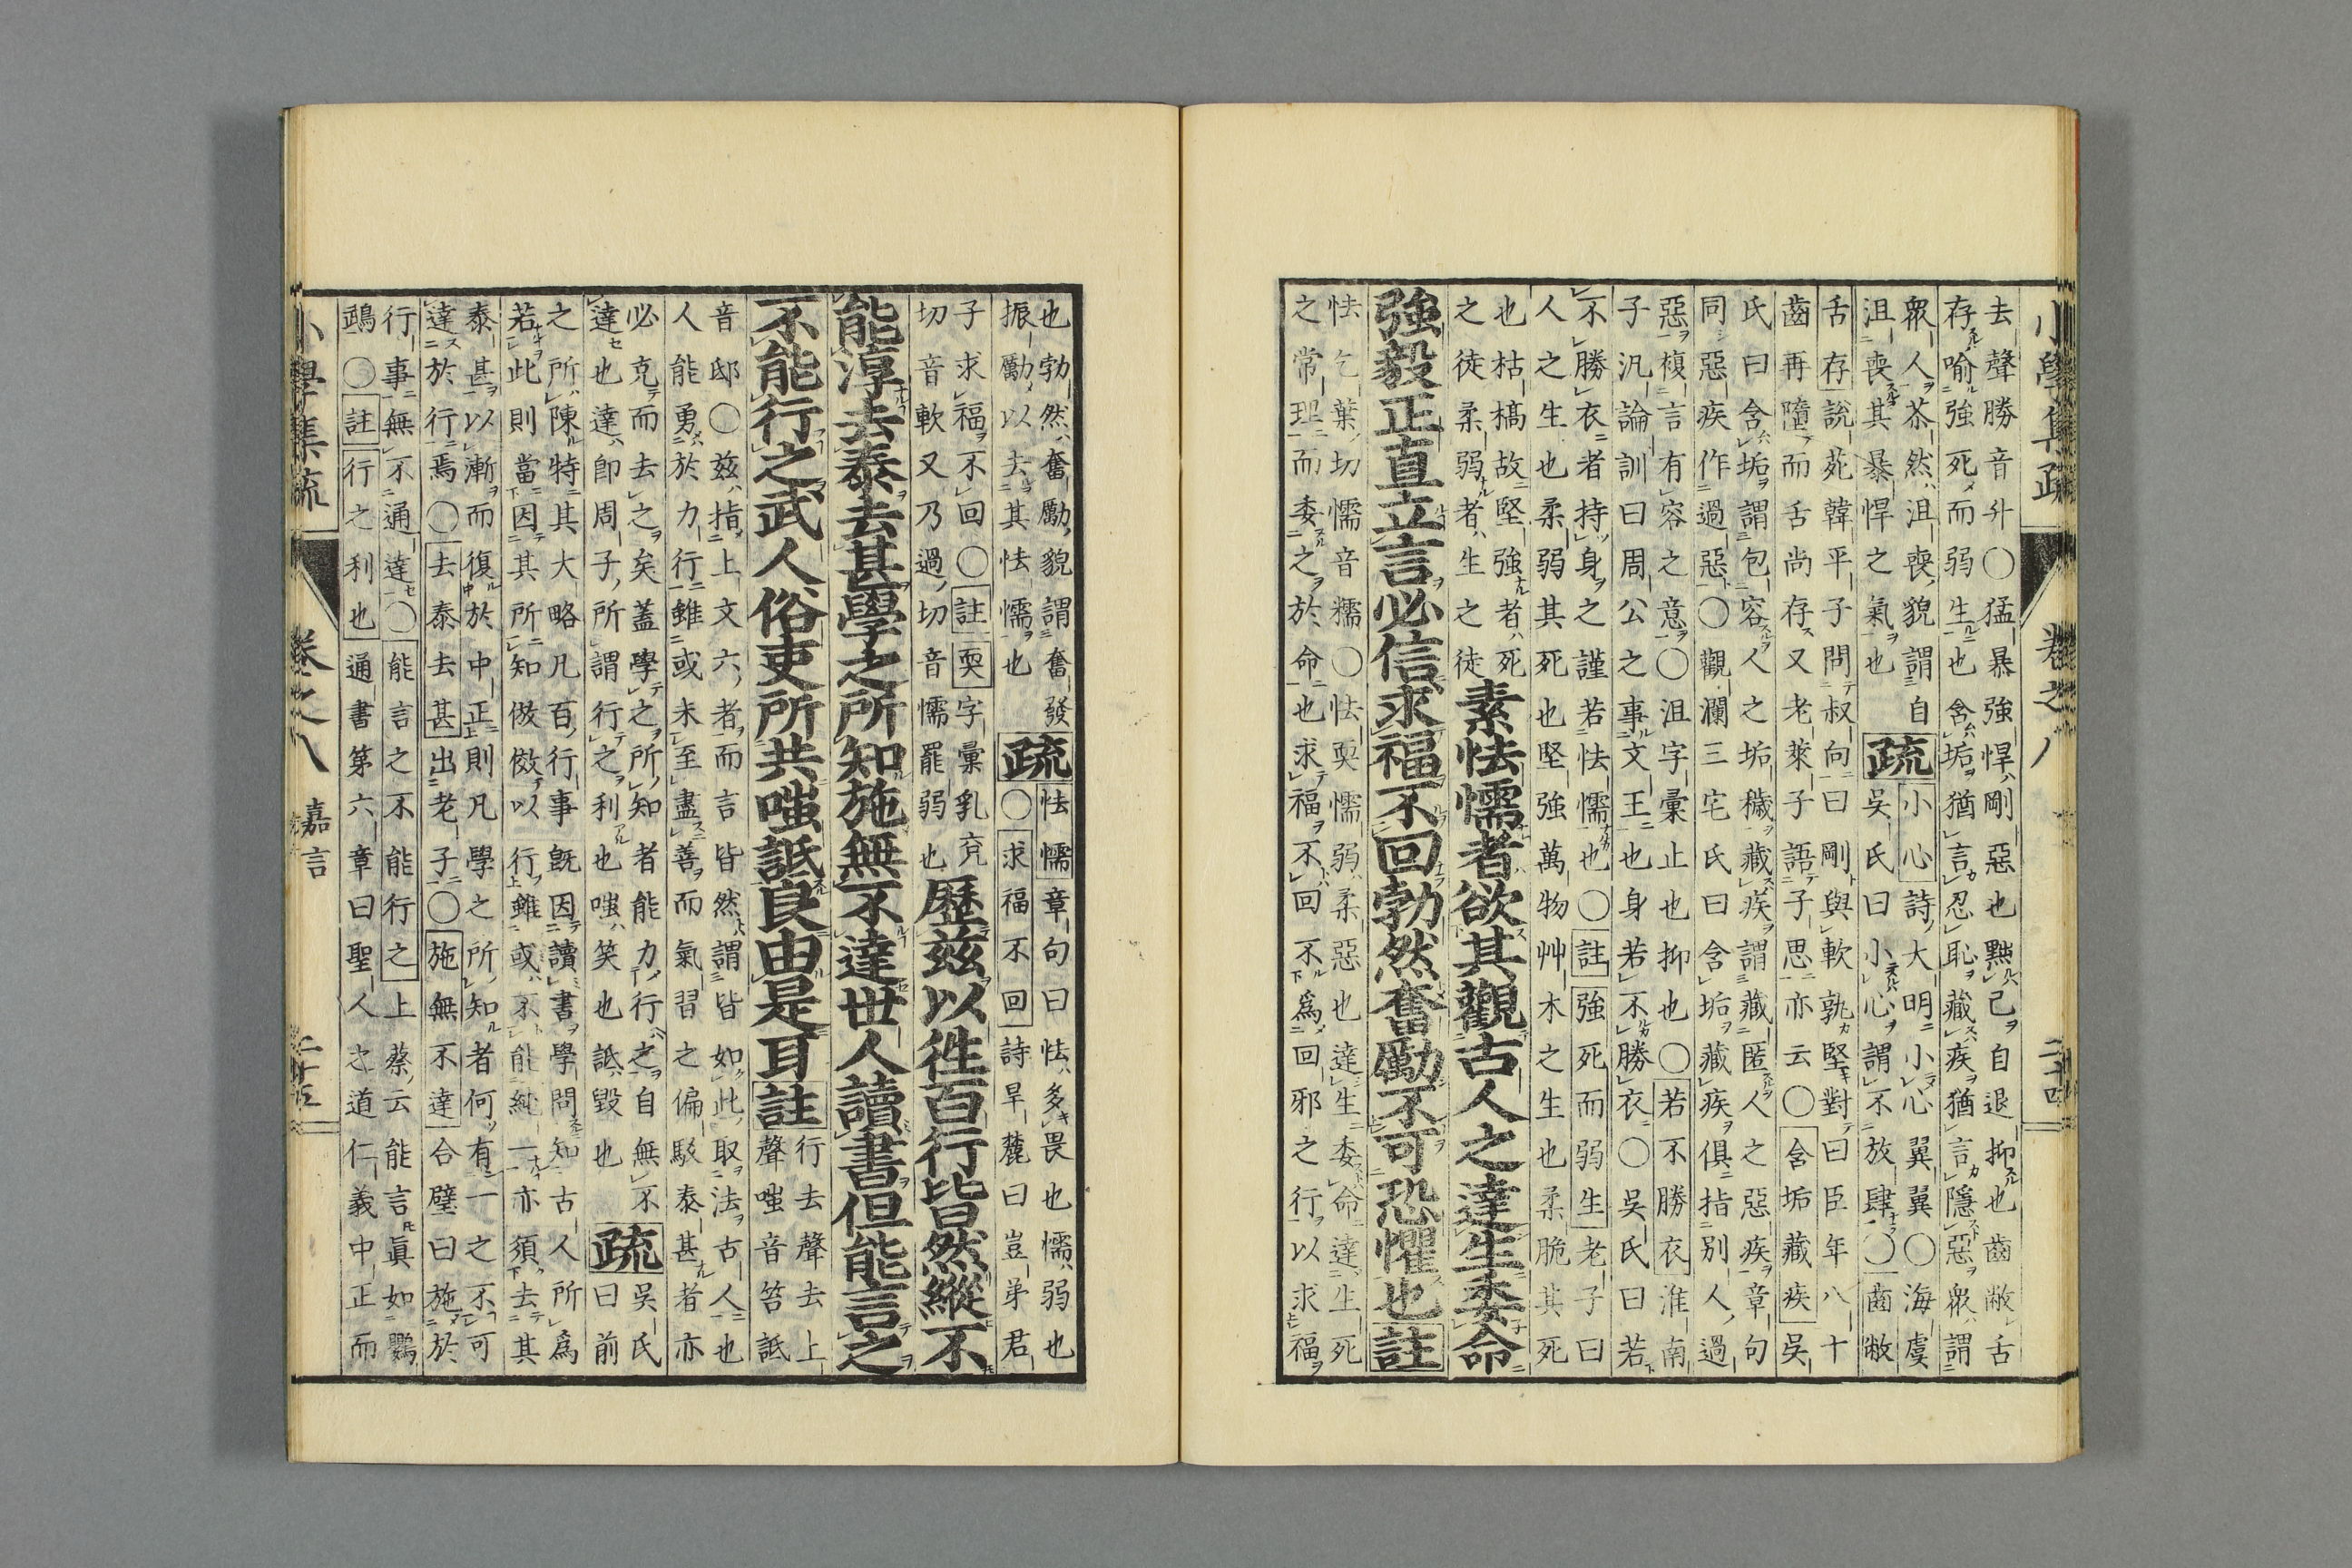 小學集疏 卷之八
去聲勝音升〇猛暴強悍剛惡也黙己自退抑也齒敝舌
存喻強死而弱生也含垢猶言忍恥藏疾猶言隱惡衆謂
衆人茶然沮喪貌謂自
沮喪其暴悍之氣也
疏
小心詩大明小心翼翼〇海虞
吳氏曰小心謂不放肆〇齒敝
舌存說苑韓平子問叔向曰剛與軟孰堅對曰臣年八十
齒再墮而舌尚存又老萊子語子思亦云〇含垢藏疾吳
氏曰含垢謂包容人之垢穢藏疾謂藏匿人之惡疾章句
同惡疾作過惡〇觀瀾三宅氏曰含垢藏疾俱指別人過
惡複言有容之意〇沮字彙止也抑也〇若不勝衣淮南
子汎論訓曰周公之事文王也身若不勝衣〇吳氏曰若
不勝衣者持身之謹若怯懦也〇註強死而弱生老子曰
人之生也柔弱其死也堅強萬物艸木之生也柔脆其死
也枯槁故堅強者死
之徒柔弱者生之徒
素怯懦者欲其觀古人之達生委命
強毅正直立言必信求福不回勃然奮勵不可恐懼也註
怯乞葉切懦音糯〇怯耎懦弱柔惡也達生委命達生死
之常理而委之於命也求福不回不爲回邪之行以求福
也勃然奮勵貌謂奮發
振勵以去其怯懦也
疏
怯懦章句曰怯多畏也懦弱也
〇求福不回詩旱麓曰豈弟君
子求福不回〇註耎字彙乳兗
切音軟又乃過切音懦罷弱也
歷茲以徃百行皆然縱不
能淳去泰去甚學之所知施無不達世人讀書但能言之
不能行之武人俗吏所共嗤詆良由是耳註
行去聲去上
聲嗤音笞詆
音邸〇茲指上文六者而言皆然謂皆如此取法古人也
人能勇於力行雖或未至盡善而氣習之偏駁泰甚者亦
必克而去之矣蓋學之所知者能力行之自無不
達也達卽周子所謂行之利也嗤笑也詆毀也
疏
吳氏
曰前
之所陳特其大略凡百行事旣因讀書學問知古人所爲
若此則當因其所知倣傚以行雖或不能純一亦須去其
泰甚以漸而復於中正則凡學之所知者何有一之不可
達於行焉〇去泰去甚出老子〇施無不達合璧曰施於
行事無不通達〇能言之不能行之上蔡云能言眞如鸚
鵡〇註行之利也通書第六章曰聖人之道仁義中正而
小學集疏 卷之八 嘉言 二十五